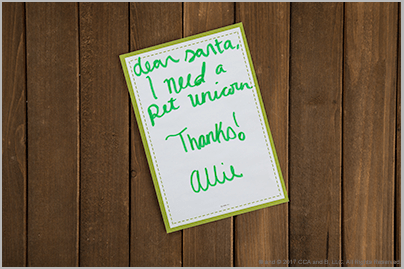 dear santa,
I need a
pet unicorn
~Thanks!
allie
© 2017 CCA and B, LLC. All Rights Reserved